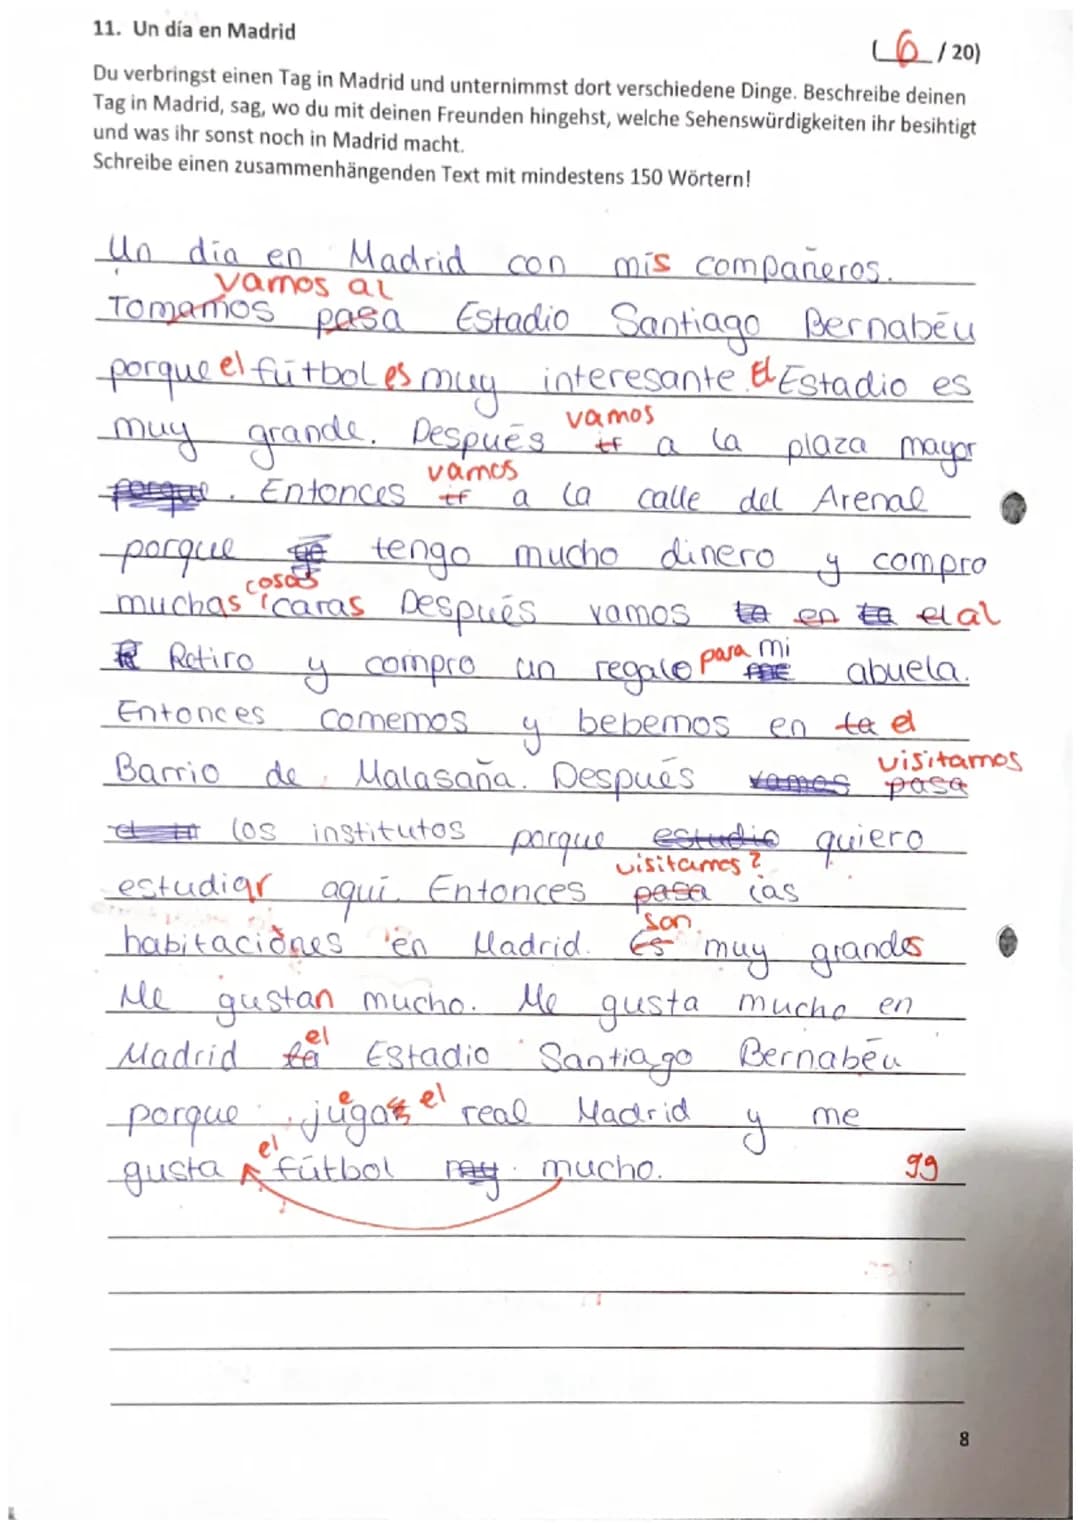 11. Un día en Madrid
(6/20)
Du verbringst einen Tag in Madrid und unternimmst dort verschiedene Dinge. Beschreibe deinen
Tag in Madrid, sag, wo du mit deinen Freunden hingehst, welche Sehenswürdigkeiten ihr besihtigt
und was ihr sonst noch in Madrid macht.
Schreibe einen zusammenhängenden Text mit mindestens 150 Wörtern!
Un día en Madrid con mis compañeros.
vamos al
Tomamos pasa Estadio Santiago Bernabéu
porque el fútbol es muy interesante. El Estadio es
vamos
muy grande. Después a la plaza mayor
vamos
porque. Entonces a la calle del Arenal
porque tengo mucho dinero y compro
cosas
muchas caras Después vamos la en la el al
Retiro y compro un regalo para mi abuela.
Entonces comemos y bebemos en la el
visitamos
Barrio de Malasaña. Después vamos pasa
los institutos porque estudio quiero
visitamos?
estudiar aquí. Entonces pasa las
son
habitaciones en Madrid. Es muy grandes
Me gustan mucho. Me gusta mucho en
el
Madrid la Estadio Santiago Bernabéu
e el
porque jugar real Madrid y me
el
gusta fútbol muy mucho.
99
8